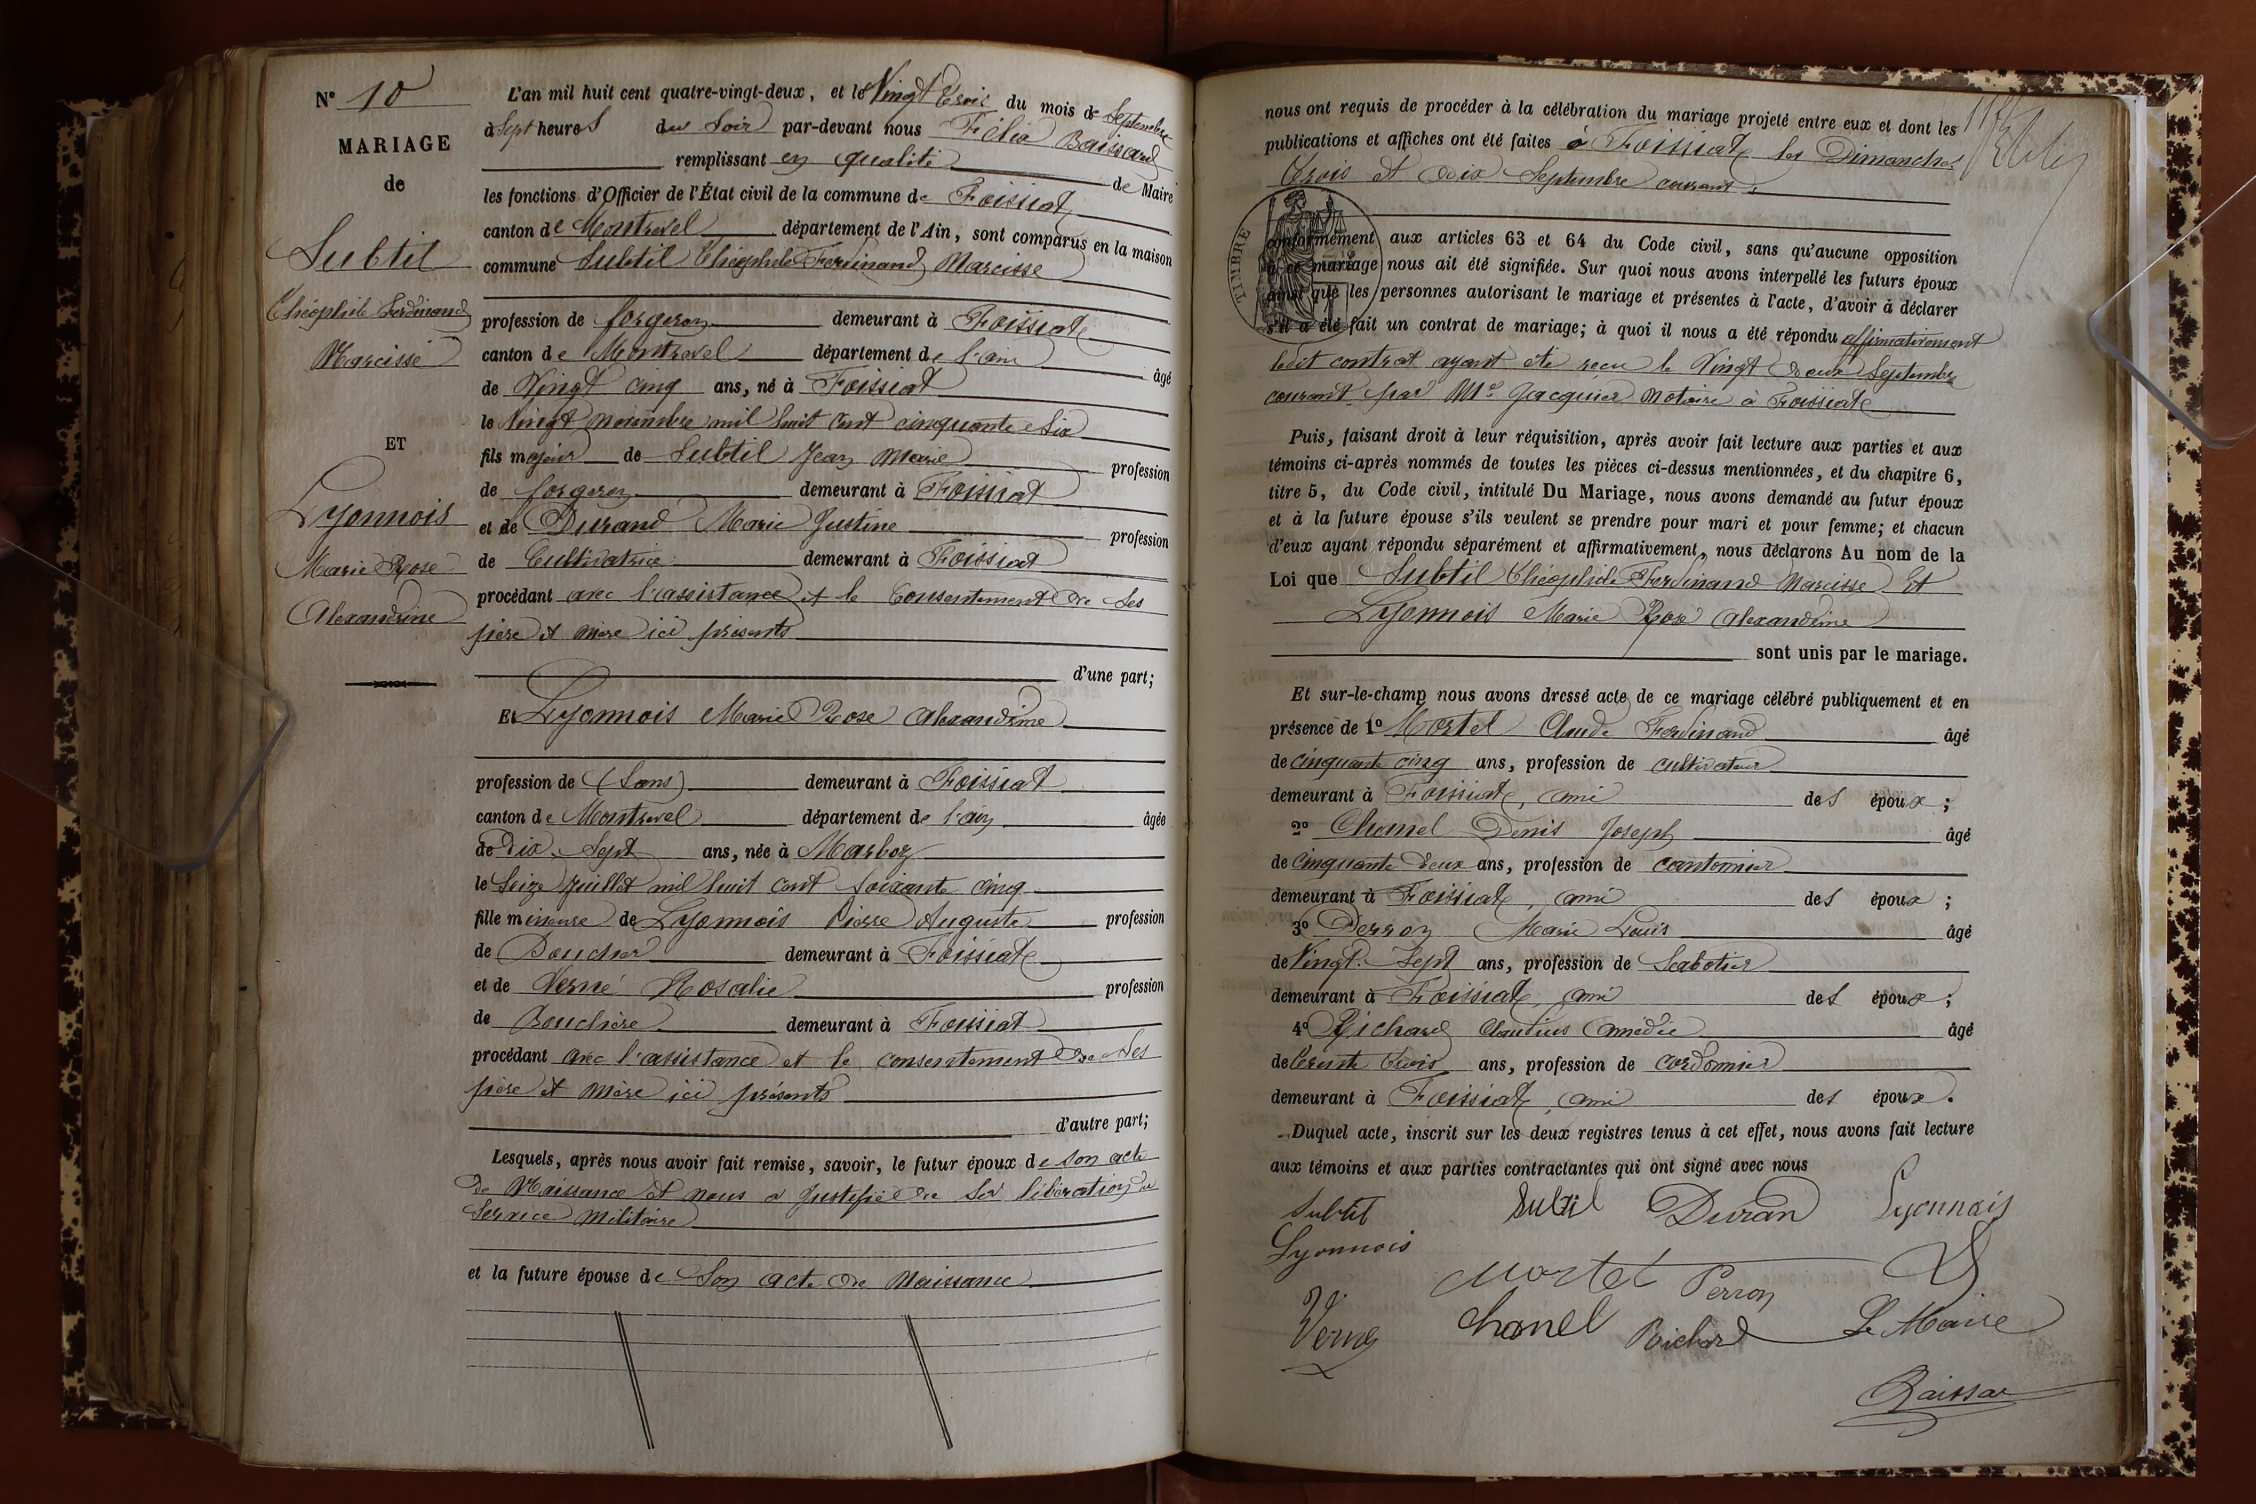 N° 10
MARIAGE
de
Subtil
Théophile Ferdinand
Narcisse
ET
Lyonnois
Marie Rose
Alexandrine
L'an mil huit cent quatre-vingt-deux, et le Vingt Trois du mois de Septembre
à Sept heures du Soir par-devant nous Félix Baissard
remplissant en qualité de Maire
les fonctions d'Officier de l'État civil de la commune de Foissiat
canton de Montrevel département de l'Ain, sont comparus en la maison
commune Subtil Théophile Ferdinand Narcisse
profession de forgeron demeurant à Foissiat
canton de Montrevel département de l'ain âgé
de Vingt cinq ans, né à Foissiat
le Vingt novembre mil huit cent cinquante Six
fils majeur de Subtil Jean Marie profession
de forgeron demeurant à Foissiat
et de Durand Marie Justine profession
de Cultivatrice demeurant à Foissiat
procédant avec l'assistance et le Consentement de Ses
père et mère ici présents
d'une part;
Et Lyonnois Marie Rose Alexandrine
profession de (Sans) demeurant à Foissiat
canton de Montrevel département de l'ain âgée
de Dix Sept ans, née à Marboz
le Seize Juillet mil huit cent Soixante cinq
fille mineure de Lyonnois Pierre Auguste profession
de Boucher demeurant à Foissiat
et de Verne Rosalie profession
de Bouchère demeurant à Foissiat
procédant avec l'assistance et le consentement de Ses
père et mère ici présents
d'autre part;
Lesquels, après nous avoir fait remise, savoir, le futur époux de Son acte
de Naissance et nous a Justifié de Sa libération du
Service Militaire
et la future épouse de Son acte de Naissance
nous ont requis de procéder à la célébration du mariage projeté entre eux et dont les
publications et affiches ont été faites à Foissiat les Dimanches
Trois et Dix Septembre courant,
TIMBRE
conformément aux articles 63 et 64 du Code civil, sans qu'aucune opposition
à ce mariage nous ait été signifiée. Sur quoi nous avons interpellé les futurs époux
ainsi que les personnes autorisant le mariage et présentes à l'acte, d'avoir à déclarer
s'il a été fait un contrat de mariage; à quoi il nous a été répondu affirmativement
ledit contrat ayant été reçu le Vingt Deux Septembre
courant par Me Jacquier Notaire à Foissiat
Puis, faisant droit à leur réquisition, après avoir fait lecture aux parties et aux
témoins ci-après nommés de toutes les pièces ci-dessus mentionnées, et du chapitre 6,
titre 5, du Code civil, intitulé Du Mariage, nous avons demandé au futur époux
et à la future épouse s'ils veulent se prendre pour mari et pour femme; et chacun
d'eux ayant répondu séparément et affirmativement, nous déclarons Au nom de la
Loi que Subtil Théophile Ferdinand Narcisse Et
Lyonnois Marie Rose Alexandrine
sont unis par le mariage.
Et sur-le-champ nous avons dressé acte de ce mariage célébré publiquement et en
présence de 1° Mortel Claude Ferdinand âgé
de cinquante cinq ans, profession de cultivateur
demeurant à Foissiat, ami des époux;
2° Chanel Denis Joseph âgé
de cinquante Deux ans, profession de cantonnier
demeurant à Foissiat, ami des époux;
3° Perron Marie Louis âgé
de Vingt Sept ans, profession de Sabotier
demeurant à Foissiat, ami des époux;
4° Richard Claudius Amédée âgé
de Trente Trois ans, profession de cordonnier
demeurant à Foissiat, ami des époux.
Duquel acte, inscrit sur les deux registres tenus à cet effet, nous avons fait lecture
aux témoins et aux parties contractantes qui ont signé avec nous
Subtil Subtil Duran Lyonnais
Lyonnois
Mortel Perron
Verne Chanel Richard Le Maire
Baissar